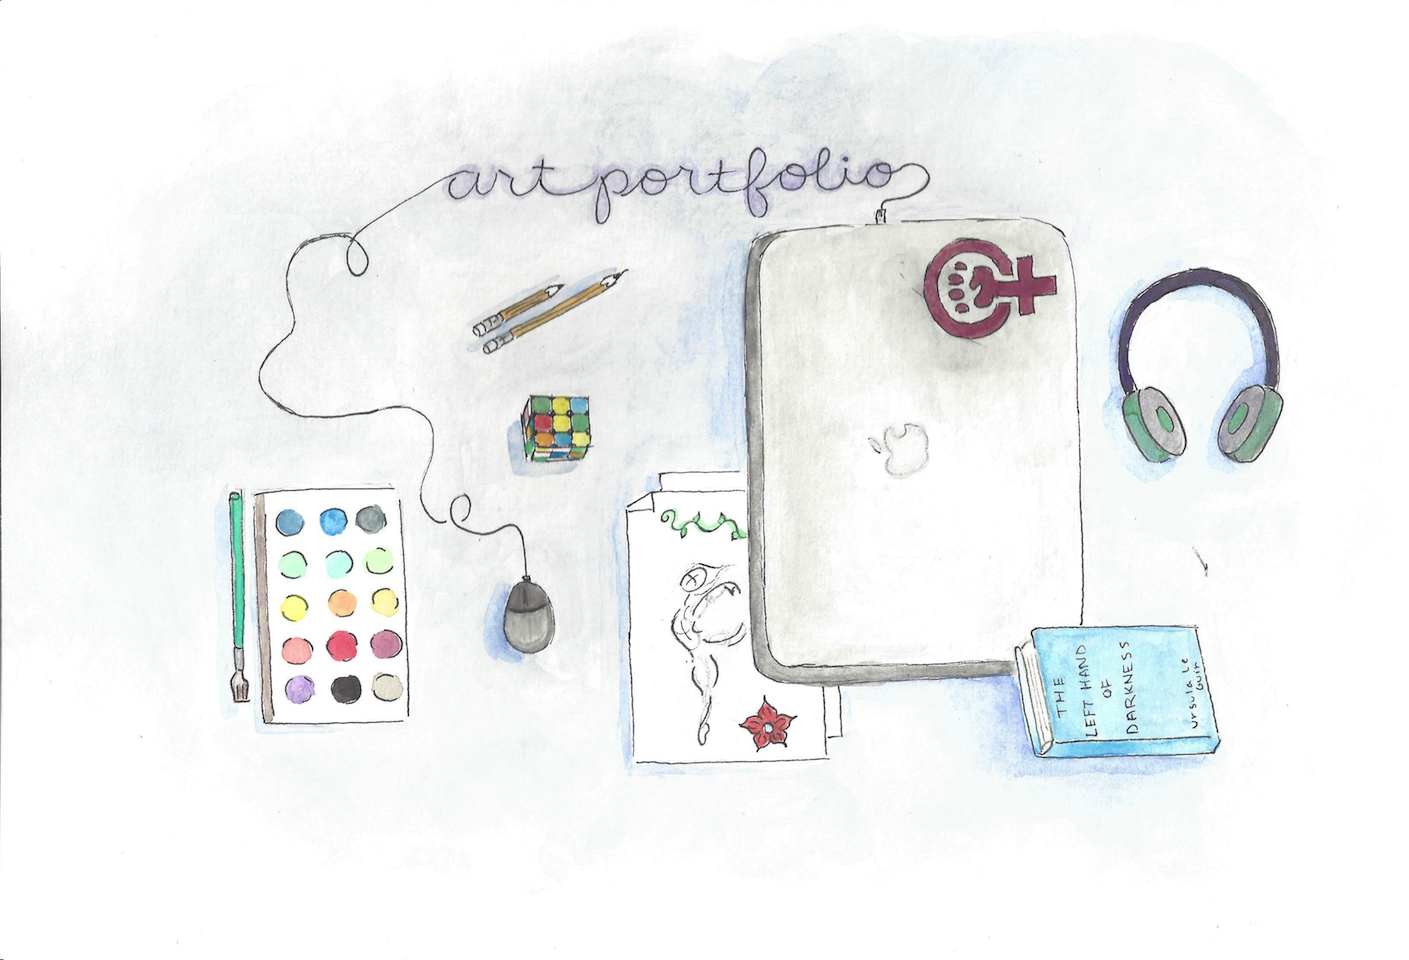 art portfolio
THE
LEFT HAND
OF
DARKNESS
Ursula Le
Guin